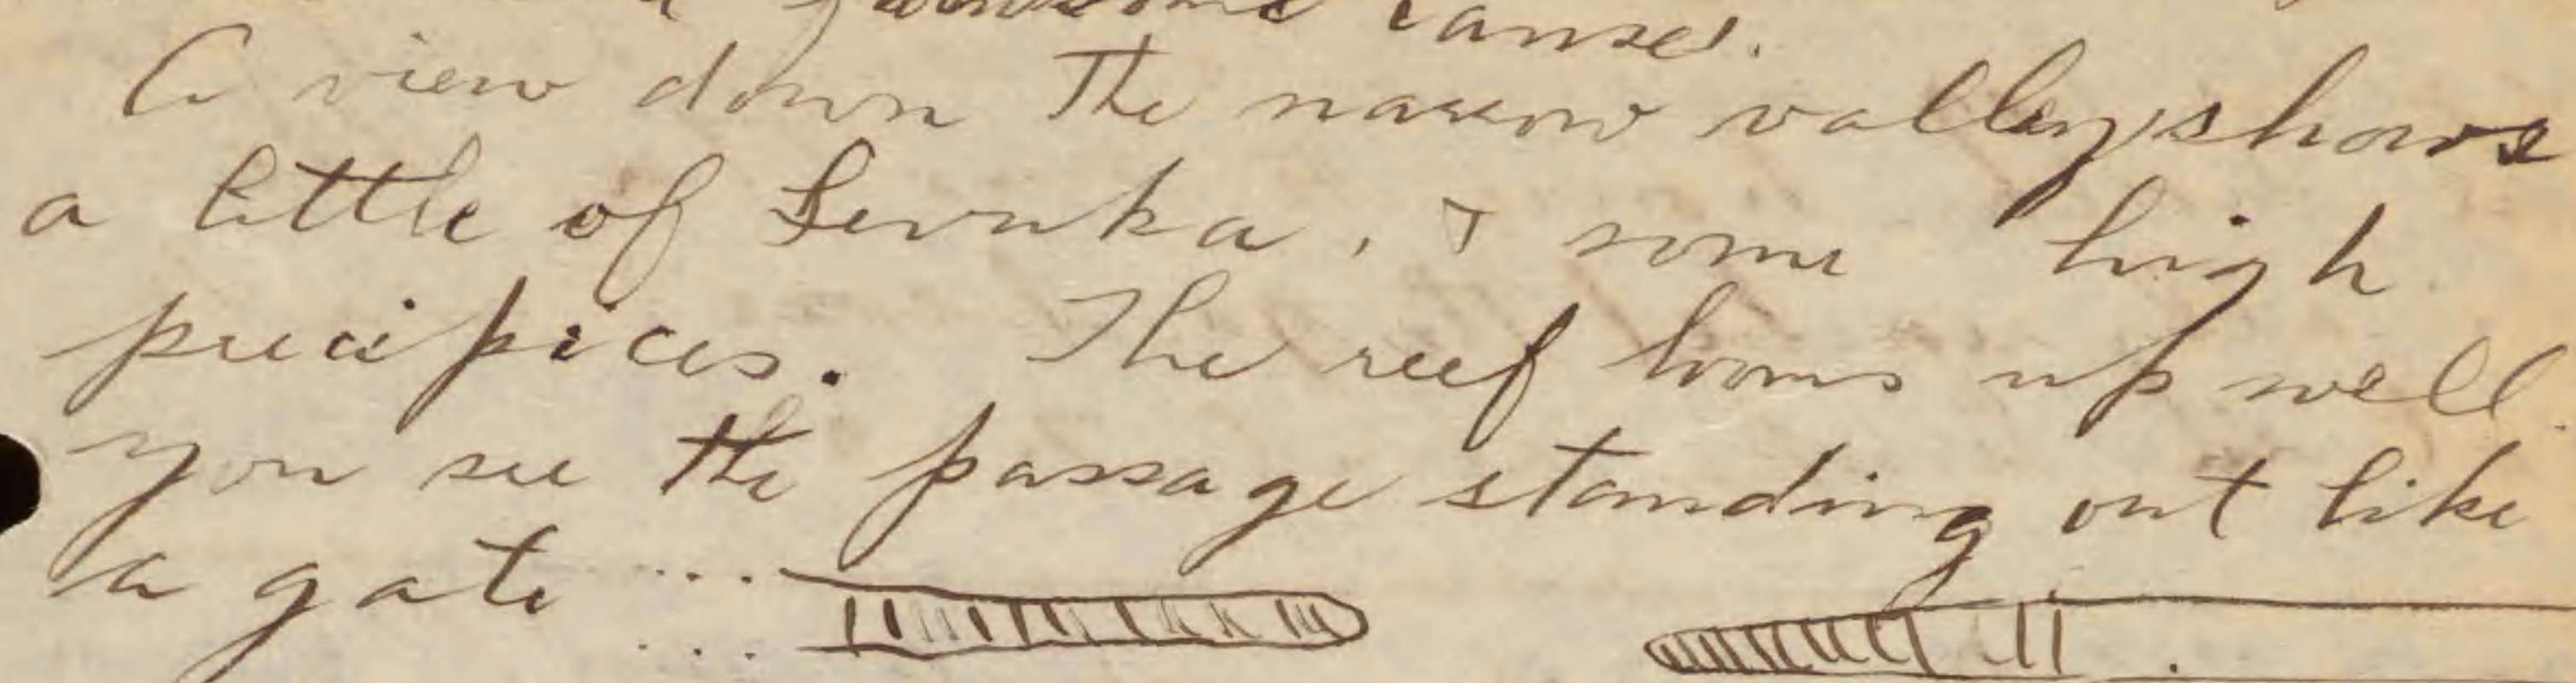 A view down the narrow valley shows
a little of Levuka, & some high
precipices. The reef looms up well.
you see the passage standing out like
a gate ...